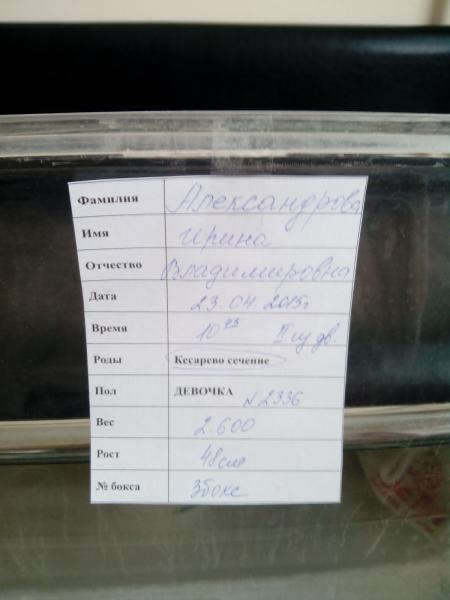 Фамилия Александрова
Имя Ирина
Отчество Владимировна
Дата 23.04.2015г
Время 10 23 II из дв.
Роды Кесарево сечение
Пол ДЕВОЧКА N2336
Вес 2.600
Рост 48см
№ бокса 3бокс